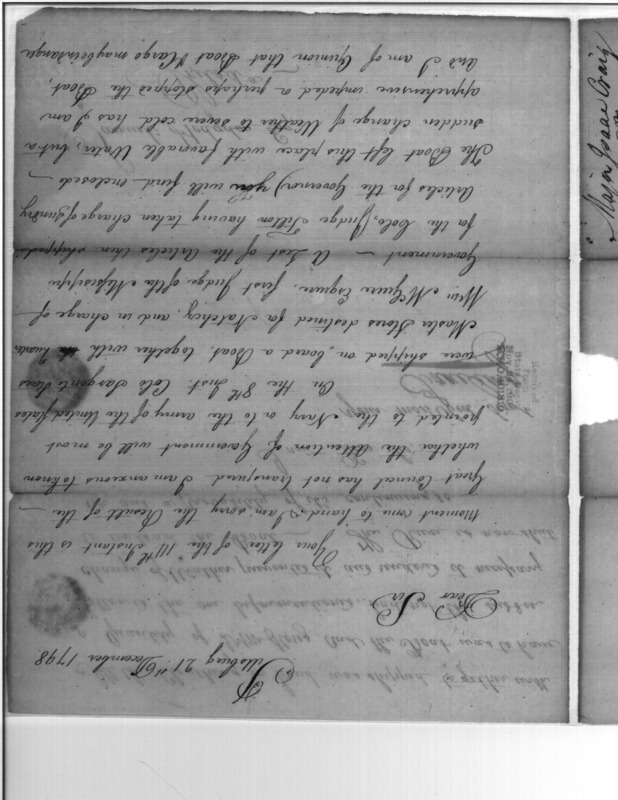 Pittsburg 21st December 1798
Dear Sir
Your letter of the 14th Instant is this
moment come to hand. I am sorry the Result of the
Great Council has not transpired I am anxious to know
whether the Attention of Government will be most
pointed to the Navy or to the Army of the United States
On the 8th Inst. Colo. Sargent's Stores
were shipped on board a Boat, together with Quarter
Master Stores destined for Natchez, and in charge of
Wm McGuire Esquire first Judge of the Mississippi
Government — A List of the Articles then shipped
for the Colo. (Judge Tilton having taken charge of Sundry
Articles for the Governor) you will find inclosed —
The Boat left this place with favorable Water, but a
sudden change of Weather to severe cold has I am
apprehensive impeded or perhaps stopped the Boat,
and I am of Opinion that Boat & Cargo may be in danger
Major Isaac Craig